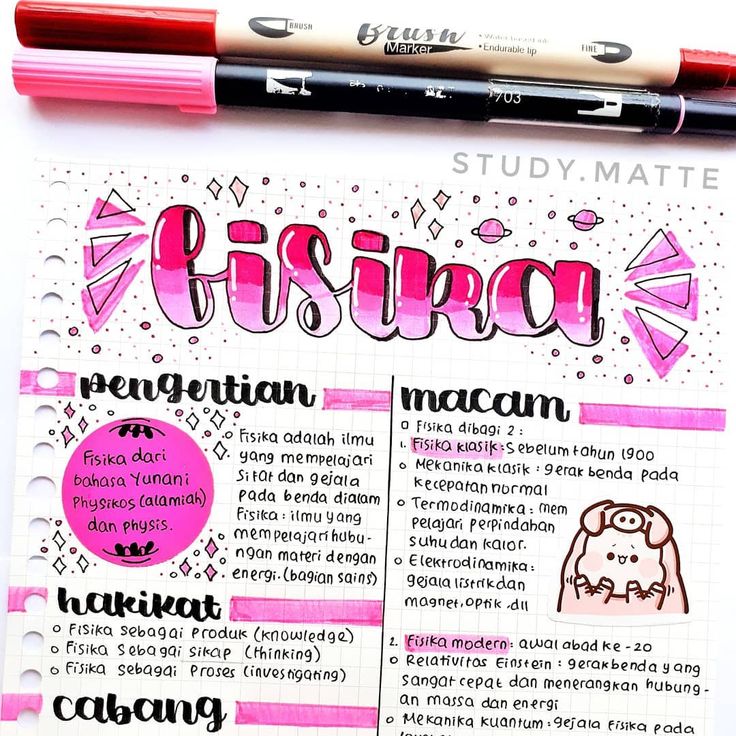 BRUSH
Brush
Marker
• Water based ink
• Endurable tip
FINE
703
STUDY.MATTE
fisika
pengertian
Fisika dari
bahasa Yunani
Physikos (alamiah)
dan physis.
Fisika adalah ilmu
yang mempelajari
sifat dan gejala
pada benda dialam
Fisika : ilmu yang
mempelajari hubu-
ngan materi dengan
energi. (bagian sains)
hakikat
Fisika sebagai produk (knowledge)
Fisika sebagai sikap (thinking)
Fisika sebagai proses (investigating)
cabang
macam
Fisika dibagi 2 :
1. Fisika klasik : Sebelum tahun 1900
Mekanika klasik : gerak benda pada
kecepatan normal
Termodinamika : mem
pelajari perpindahan
suhu dan kalor.
Elektrodinamika :
gejala listrik dan
magnet, optik .dll
2. Fisika modern : awal abad ke - 20
Relativitas Einstein : gerak benda yang
sangat cepat dan menerangkan hubung-
an massa dan energi
Mekanika kuantum : gejala fisika pada